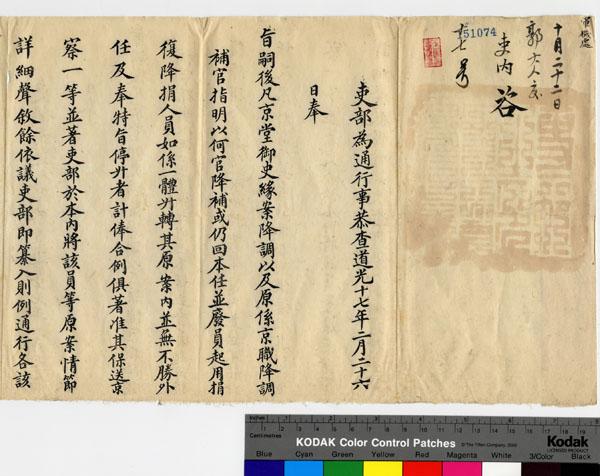 軍機處
十月二十二日
郭大人交
吏內 咨
151074
七 號
吏部為通行事恭查道光十七年二月二十六
日奉
旨嗣後凡京堂御史緣案降調以及原係京職降調
補官指明以何官降補或仍回本任並廢員起用捐
復降捐人員如係一體升轉其原案內並無不勝外
任及奉特旨停升者計俸合例俱著准其保送京
察一等並著吏部於本內將該員等原案情節
詳細聲敘餘依議吏部即纂入則例通行各該
Inches
Centimetres
KODAK Color Control Patches
© The Tiffen Company, 2000
Kodak
LICENSED PRODUCT
Blue Cyan Green Yellow Red Magenta White 3/Color Black